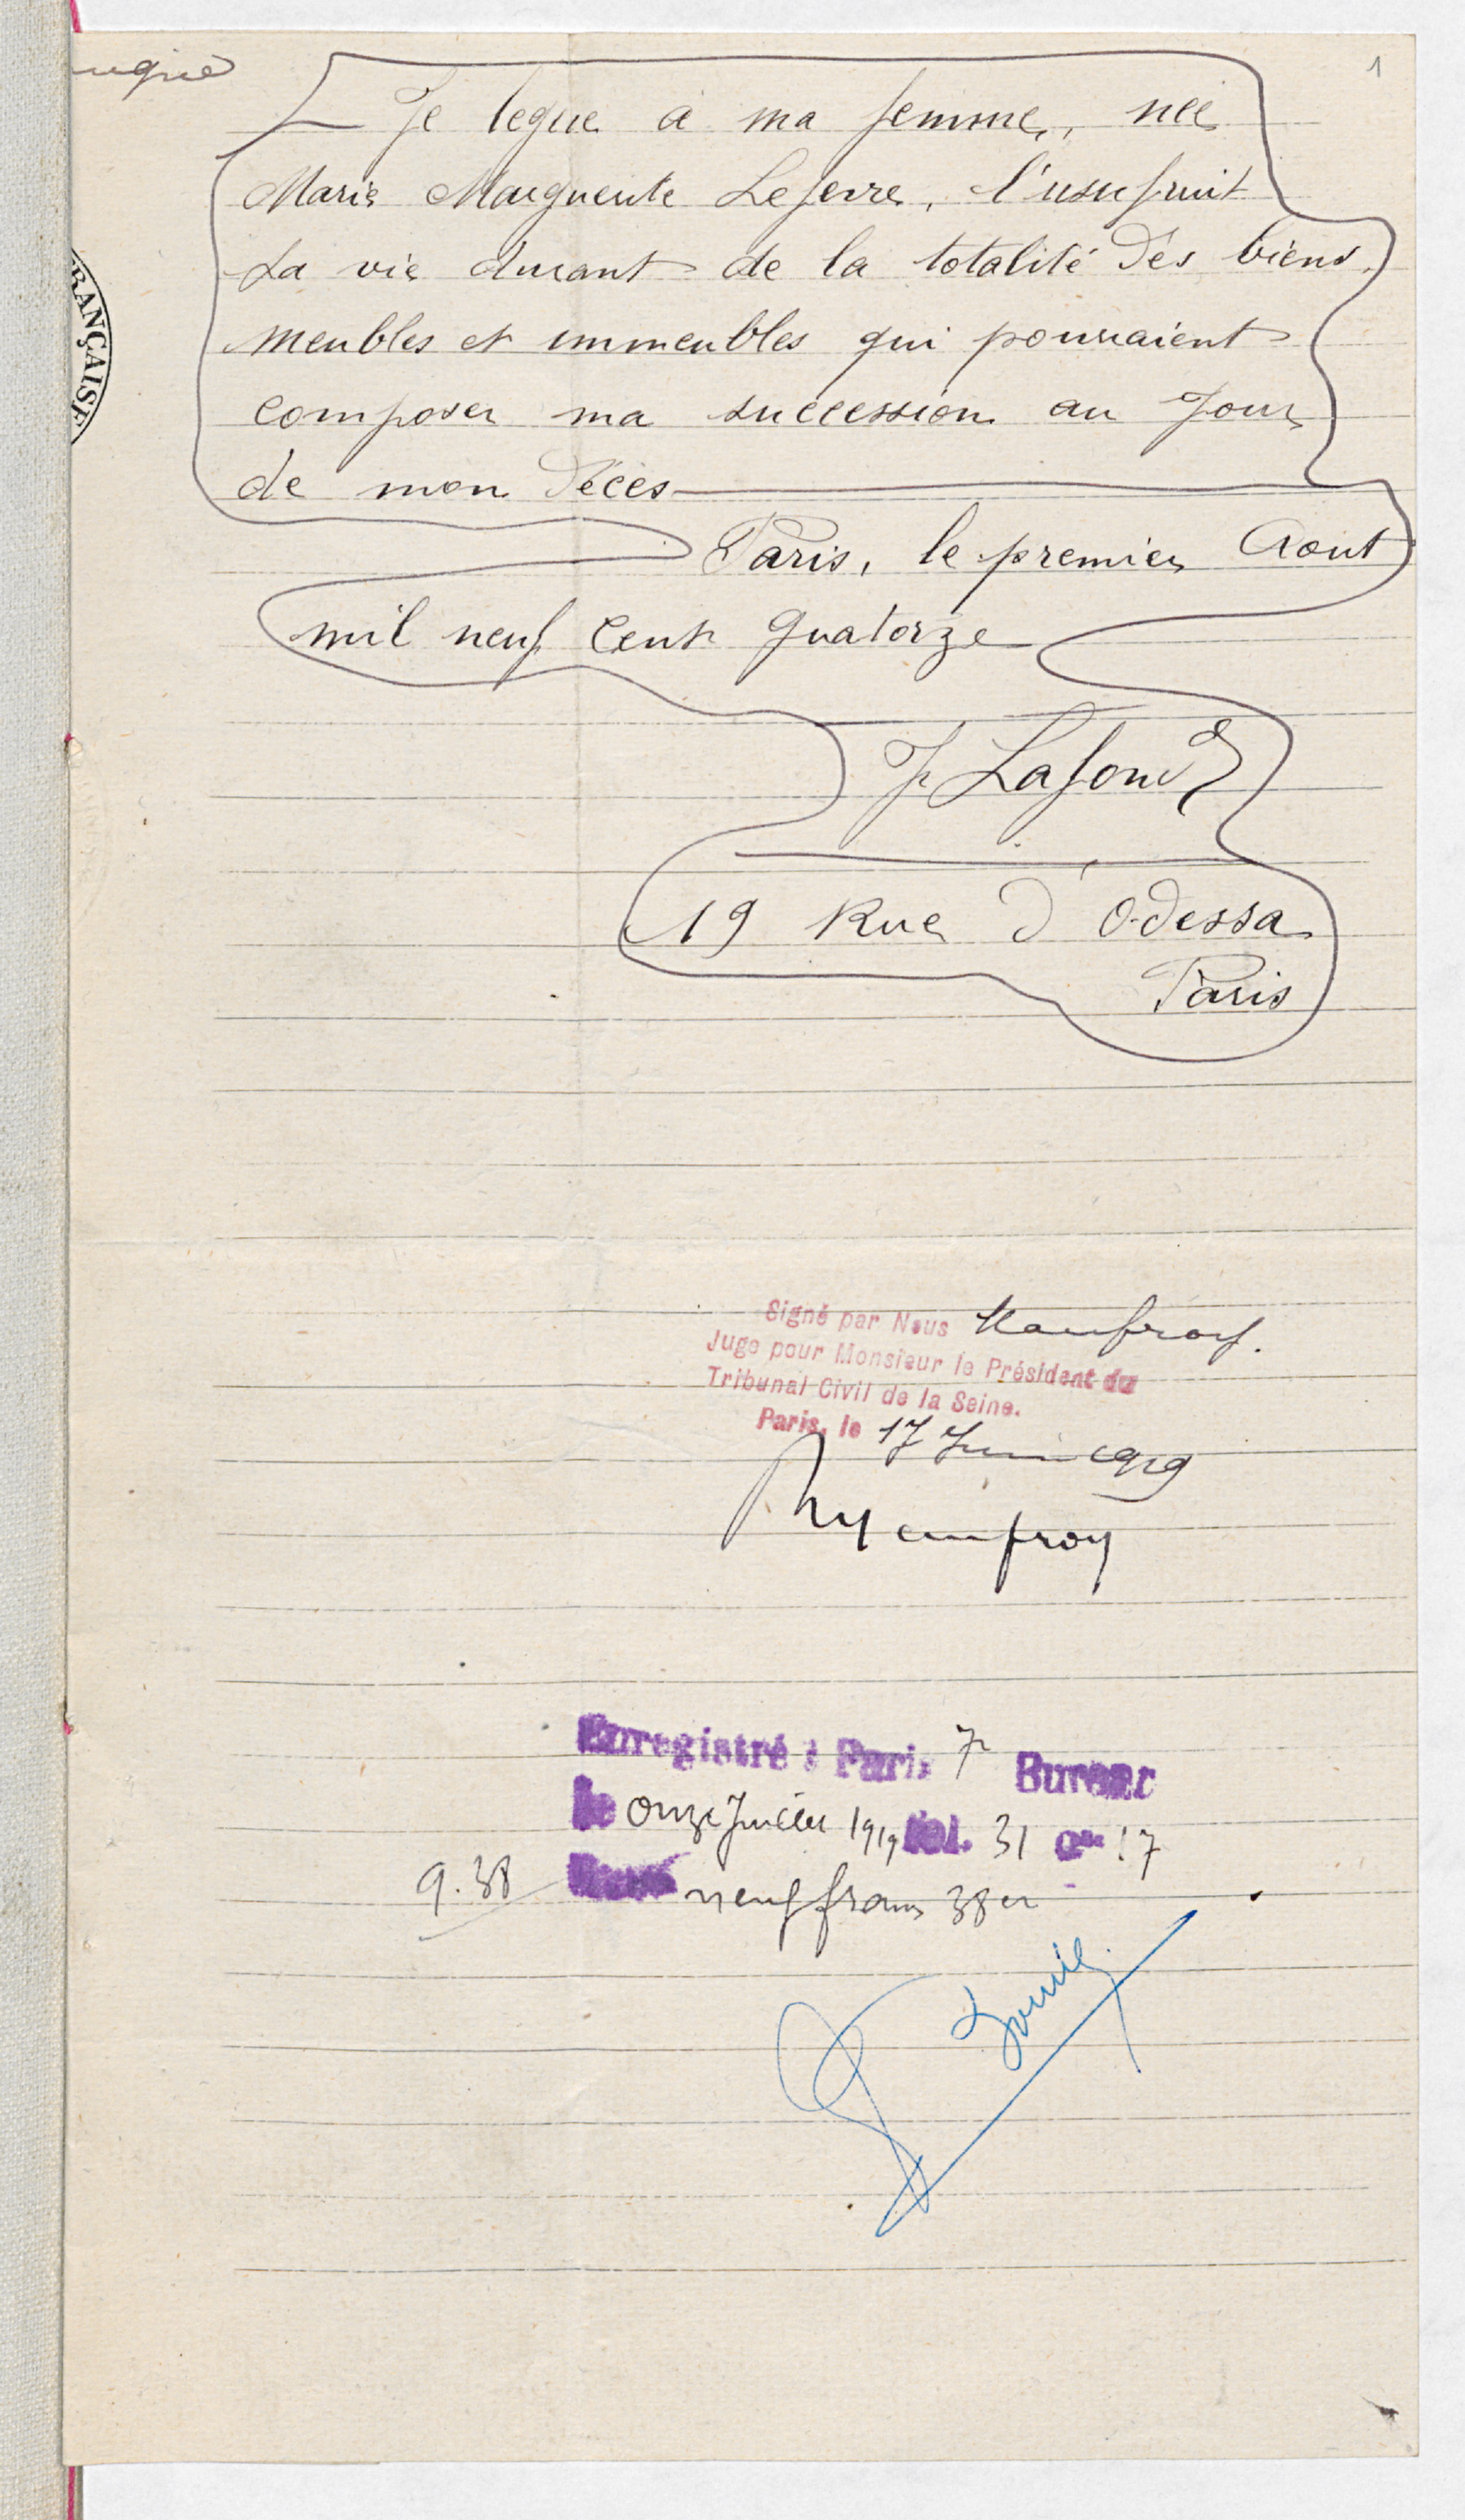 1
Je legue a ma femme, née
Marie Marguerite Lefevre, l'usufruit
sa vie durant de la totalité des biens
meubles et immeubles qui pourraient
composer ma succession au jour
de mon décès
Paris, le premier Aout
mil neuf cent quatorze
J Lafond
19 Rue d'Odessa
Paris
RANÇAISE
Signé par Nous Maufroy.
Juge pour Monsieur le Président du
Tribunal Civil de la Seine.
Paris, le 17 Juin 1919
Maufroy
Enregistré à Paris 7e Bureau
le onze Juillet 1919 fol. 31 Cse 17
9.38 neuf francs 38 ct